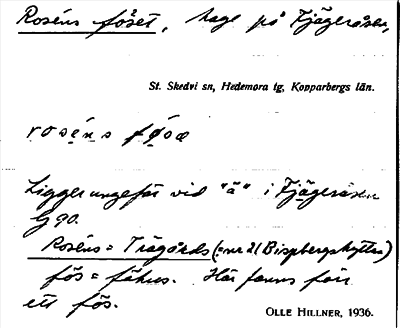 Roséns föset, hage på Fjägeråsen,
St. Skedvi sn, Hedemora tg, Kopparbergs län.
roséns føsæ
Ligger ungefär vid "ä" i Fjägeråsen
G 90.
Roséns = Trägårds (= nr 21 Bispbergshyttan)
fös = fähus. Här fanns förr
ett fös.
OLLE HILLNER, 1936.